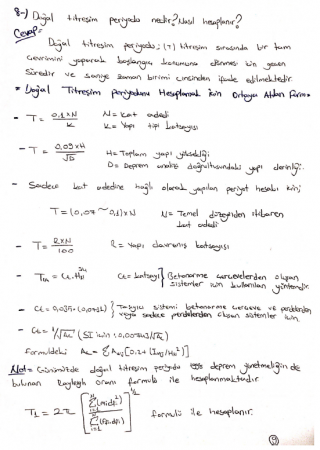 8-) Doğal titresim periyodu nedir? Nasıl hesaplanır?
Cevap=
Doğal titresim periyodu; (T) titresim sırasında bir tam
Cevrimini yaparak başlangıç konumuna dönmesi için geçen
Süredir ve saniye zaman birimi cinsinden ifade edilmektedir.
* Doğal Titreşim Periyodunu Hesaplamak için Ortaya Atılan
- T = 0,1xN / K N = Kat adedi
K = Yapı tipi katsayısı
- T = 0,09xH / √D H = Toplam yapı yüksekliği
D = Deprem analiz doğrultusundaki yapı derinliği.
- Sadece kat adedine bağlı olarak yapılan periyot hesabı için;
T = (0,07 ~ 0,1)xN N = Temel düzeyinden itibaren
kat adedi
- T = RxN / 100 R = Yapı davranış katsayısı
- T1A = Ct.HN^3/4 Ct = katsayı } Betonarme çerçevelerden oluşan
sistemler için kullanılan yöntemdir.
- Ct = 0,035 } Taşıyıcı sistemi betonarme çerçeve ve perdelerden
veya sadece perdelerden oluşan sistemler için.
- Ct = (SI için :
Formüldeki
Not = Günümüzde doğal titresim periyodu deprem yönetmeliğinde
bulunan Rayleigh oranı formülü ile hesaplanmaktadır.
T1 = 2π [ Σ(mi.df²) / Σ(Ffi.dfi) ]^1/2 formülü ile hesaplanır.
9